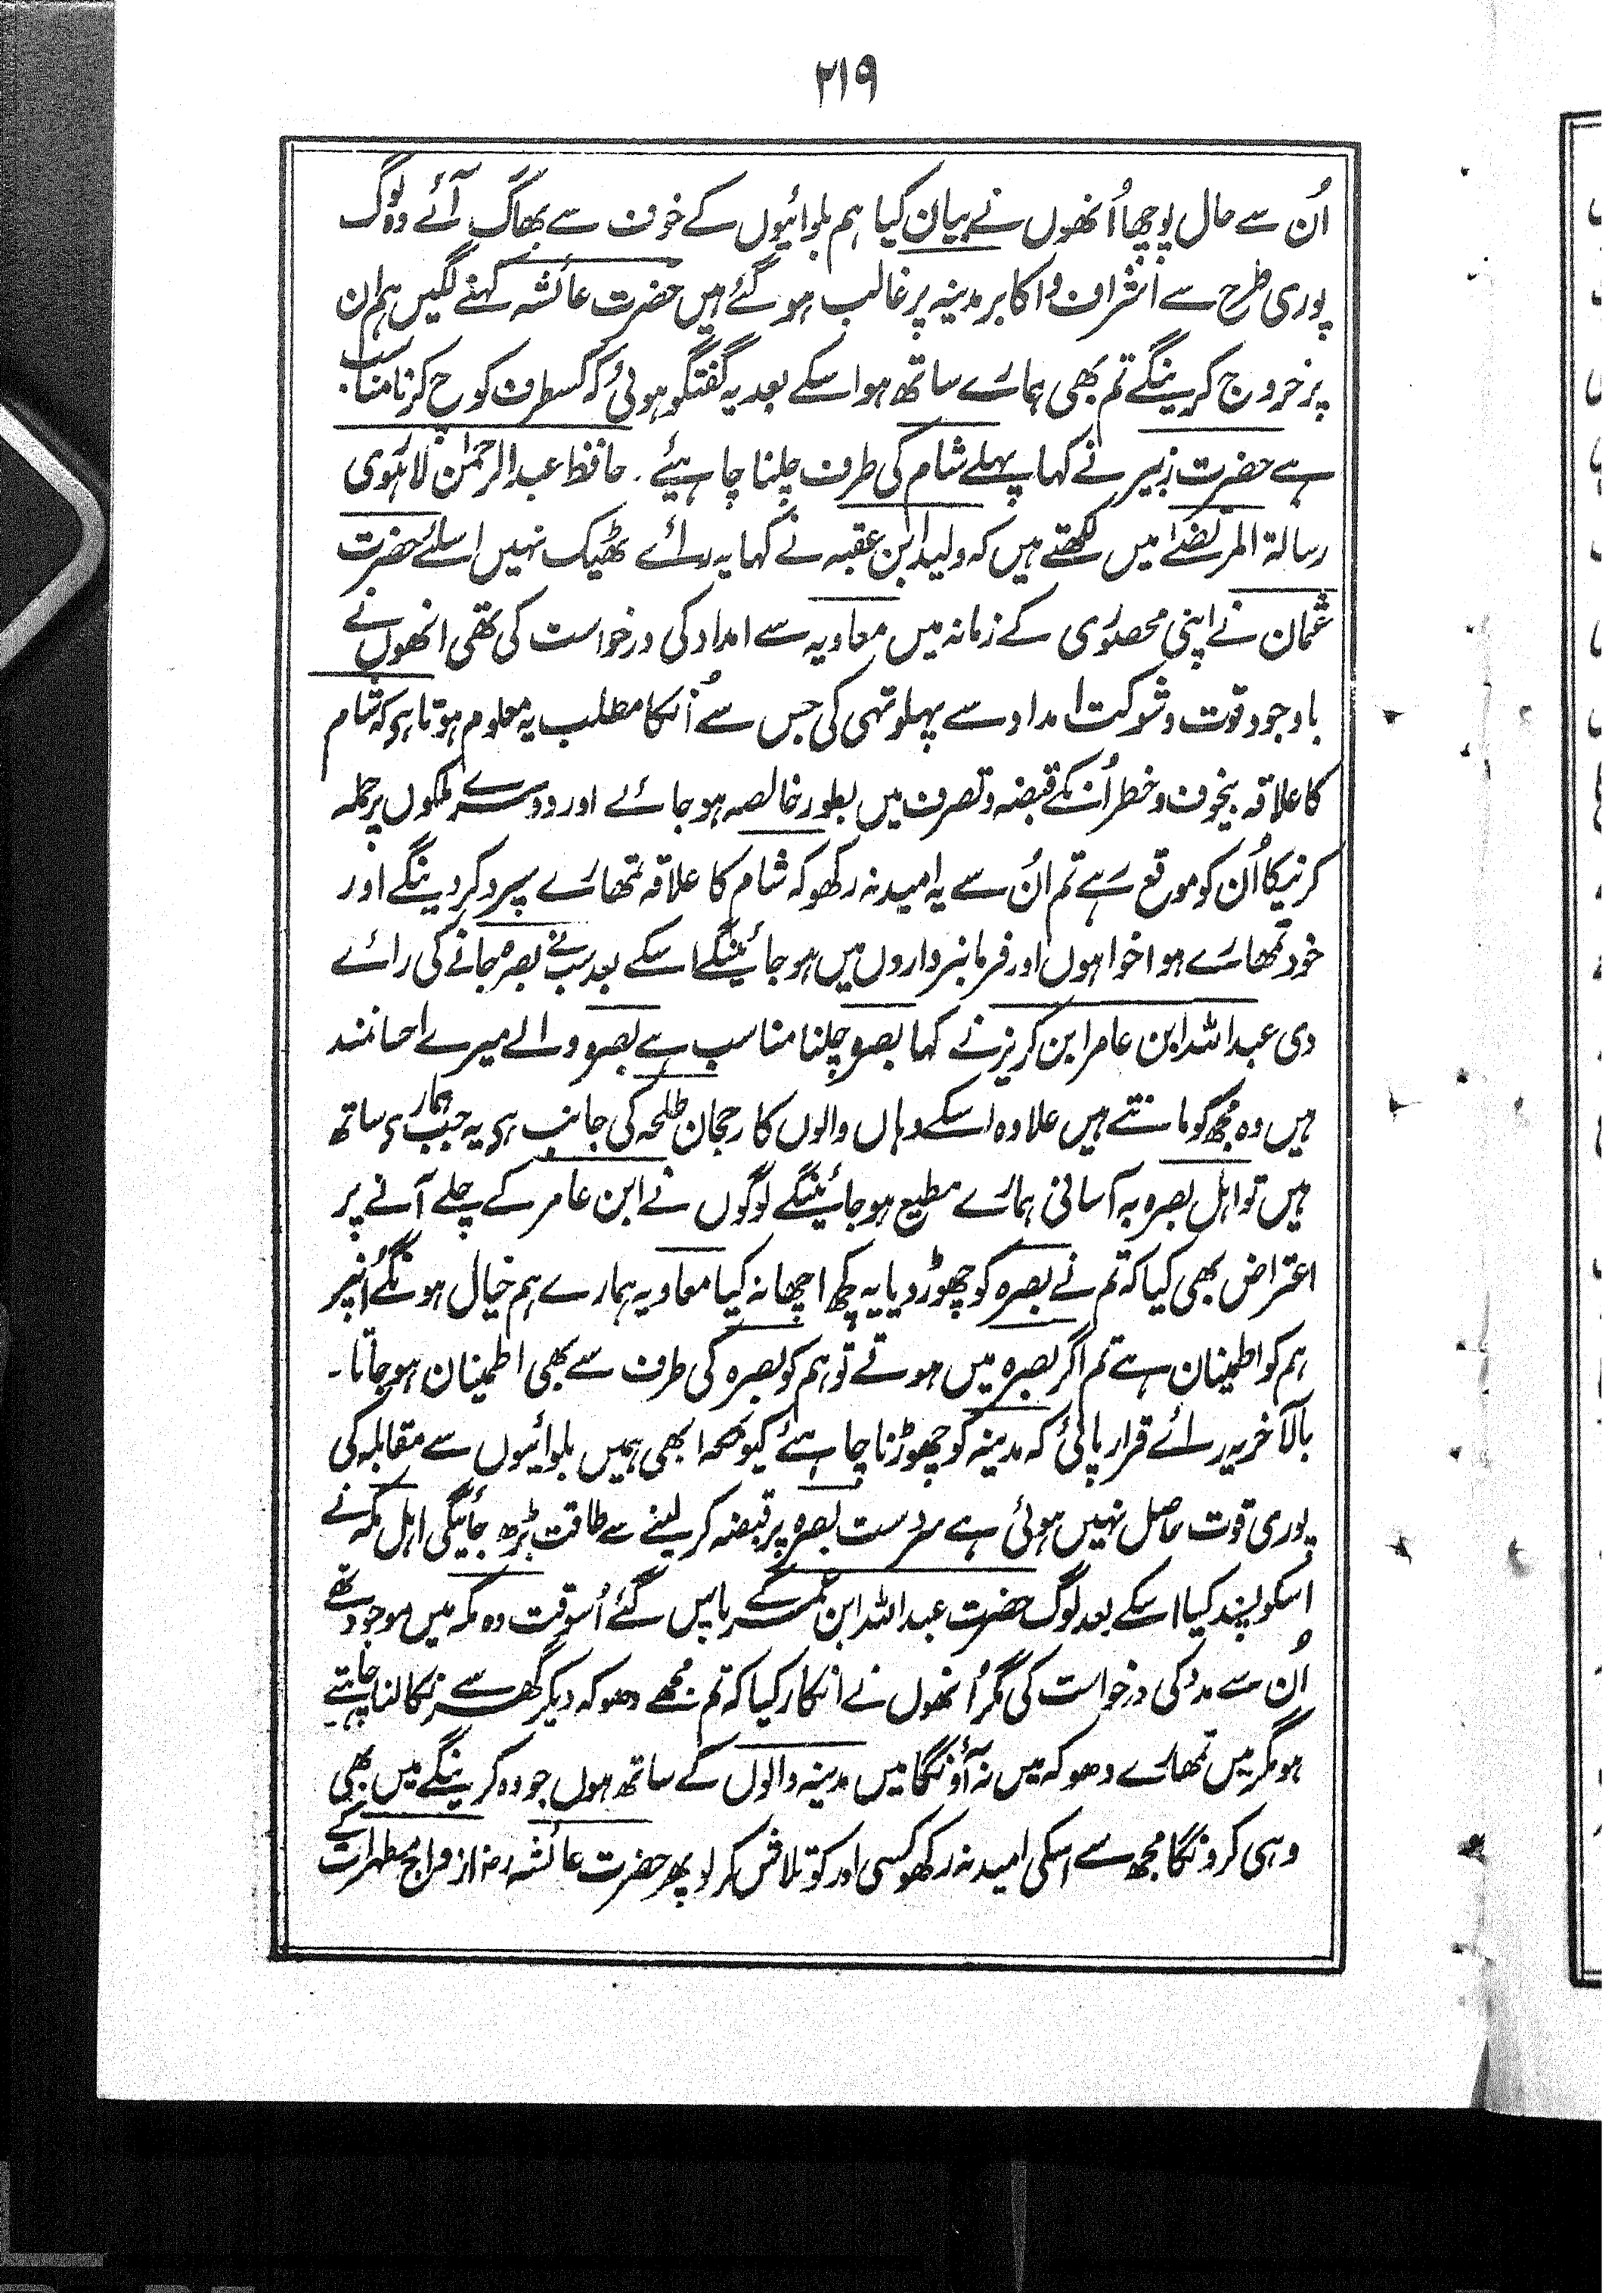 ۲۱۹
اُن سے حال پوچھا اُنھوں نے بیان کیا ہم بلوائیوں کے خوف سے بھاگ آئے وہ لوگ
پوری طرح سے اشراف و اکابر مدینہ پر غالب ہو گئے ہیں حضرت عائشہ کہنے لگیں ہم ان
پر خروج کرینگے تم بھی ہمارے ساتھ ہو اسکے بعد یہ گفتگو ہوئی کہ کسطرف کوچ کرنا مناسب
ہے حضرت زبیر نے کہا پہلے شام کی طرف چلنا چاہیئے ۔ حافظ عبدالرحمٰن لاہوی
رسالۃ المرتضےٰ میں لکھتے ہیں کہ ولید ابن عقبہ نے کہا یہ رائے ٹھیک نہیں اسلئے حضرت
عثمان نے اپنی محصوری کے زمانہ میں معاویہ سے امداد کی درخواست کی تھی انھوں نے
باوجود قوت و شوکت امداد سے پہلو تہی کی جس سے اُنکا مطلب یہ معلوم ہوتا ہے کہ شام
کا علاقہ بیخوف و خطر اُنکے قبضہ و تصرف میں بطور خالصہ ہو جائے اور دوسرے ملکوں پر حملہ
کرنیکا اُن کو موقع رہے تم اُن سے یہ امید نہ رکھو کہ شام کا علاقہ تمھارے سپرد کر دینگے اور
خود تمھارے ہوا خواہوں اور فرمانبرداروں میں ہو جائینگے اسکے بعد سب نے بصرہ جانے کی رائے
دی عبداللہ ابن عامر ابن کریز نے کہا بصرہ چلنا مناسب ہے بصرہ والے میرے احسانمند
ہیں وہ مجھ کو مانتے ہیں علاوہ اسکے وہاں والوں کا رجحان طلحہ کی جانب ہے یہ جب ہمارے ساتھ
ہیں تو اہل بصرہ بہ آسانی ہمارے مطیع ہو جائینگے لوگوں نے ابن عامر کے چلے آنے پر
اعتراض بھی کیا کہ تم نے بصرہ کو چھوڑ دیا یہ کچھ اچھا نہ کیا معاویہ ہمارے ہم خیال ہونگے اُنپر
ہم کو اطمینان ہے تم اگر بصرہ میں ہوتے تو ہم کو بصرہ کی طرف سے بھی اطمینان ہو جاتا ۔
بالآخر یہ رائے قرار پائی کہ مدینہ کو چھوڑنا چاہئے کیونکہ ابھی ہمیں بلوائیوں سے مقابلہ کی
پوری قوت حاصل نہیں ہوئی ہے سر دست بصرہ پر قبضہ کر لینے سے طاقت بڑھ جائیگی اہل مکہ نے
اسکو پسند کیا اسکے بعد لوگ حضرت عبداللہ ابن عمر کے پاس گئے اُسوقت وہ مکہ میں موجود تھے
اُن سے مدد کی درخواست کی مگر اُنھوں نے انکار کیا کہ تم مجھے دھوکہ دیکر گھر سے نکالنا چاہتے
ہو مگر میں تمھارے دھوکہ میں نہ آؤنگا میں مدینہ والوں کے ساتھ ہوں جو وہ کرینگے میں بھی
وہی کرونگا مجھ سے اسکی امید نہ رکھو کسی اور کو تلاش کر لو پھر حضرت عائشہ رض ازواج مطہرات کے